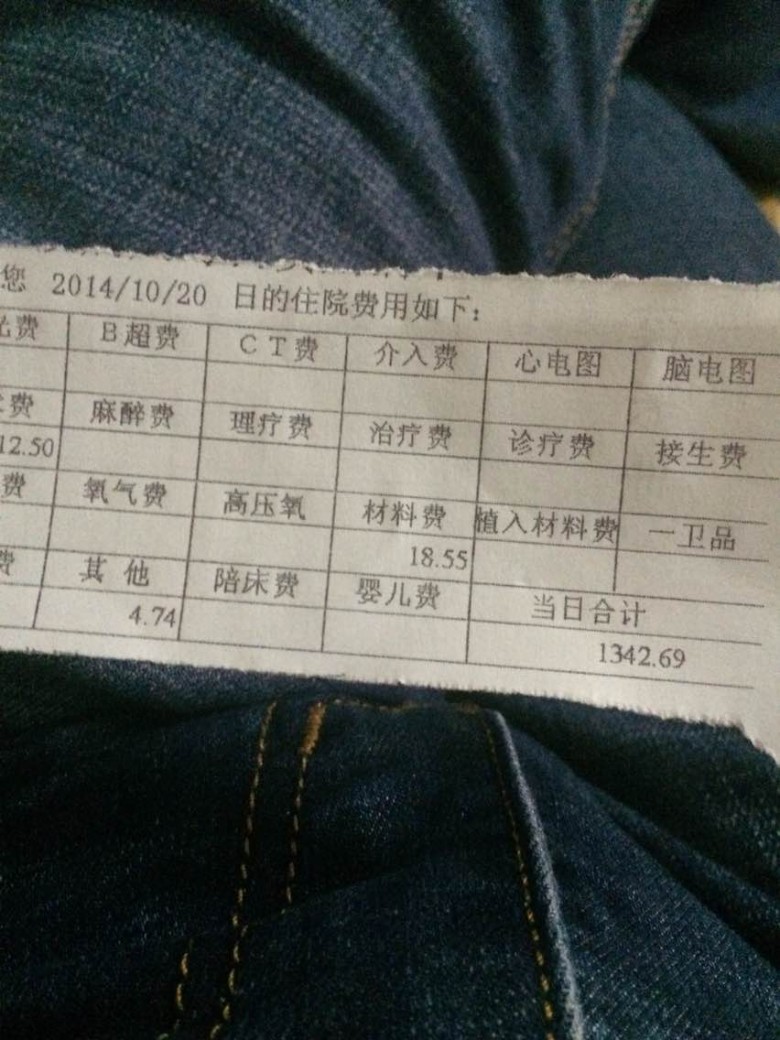 您 2014/10/20 日的住院费用如下：
光费 B超费 CT费 介入费 心电图 脑电图
费 麻醉费 理疗费 治疗费 诊疗费 接生费
12.50
费 氧气费 高压氧 材料费 植入材料费 一卫品
18.55
费 其他 陪床费 婴儿费 当日合计
4.74 1342.69